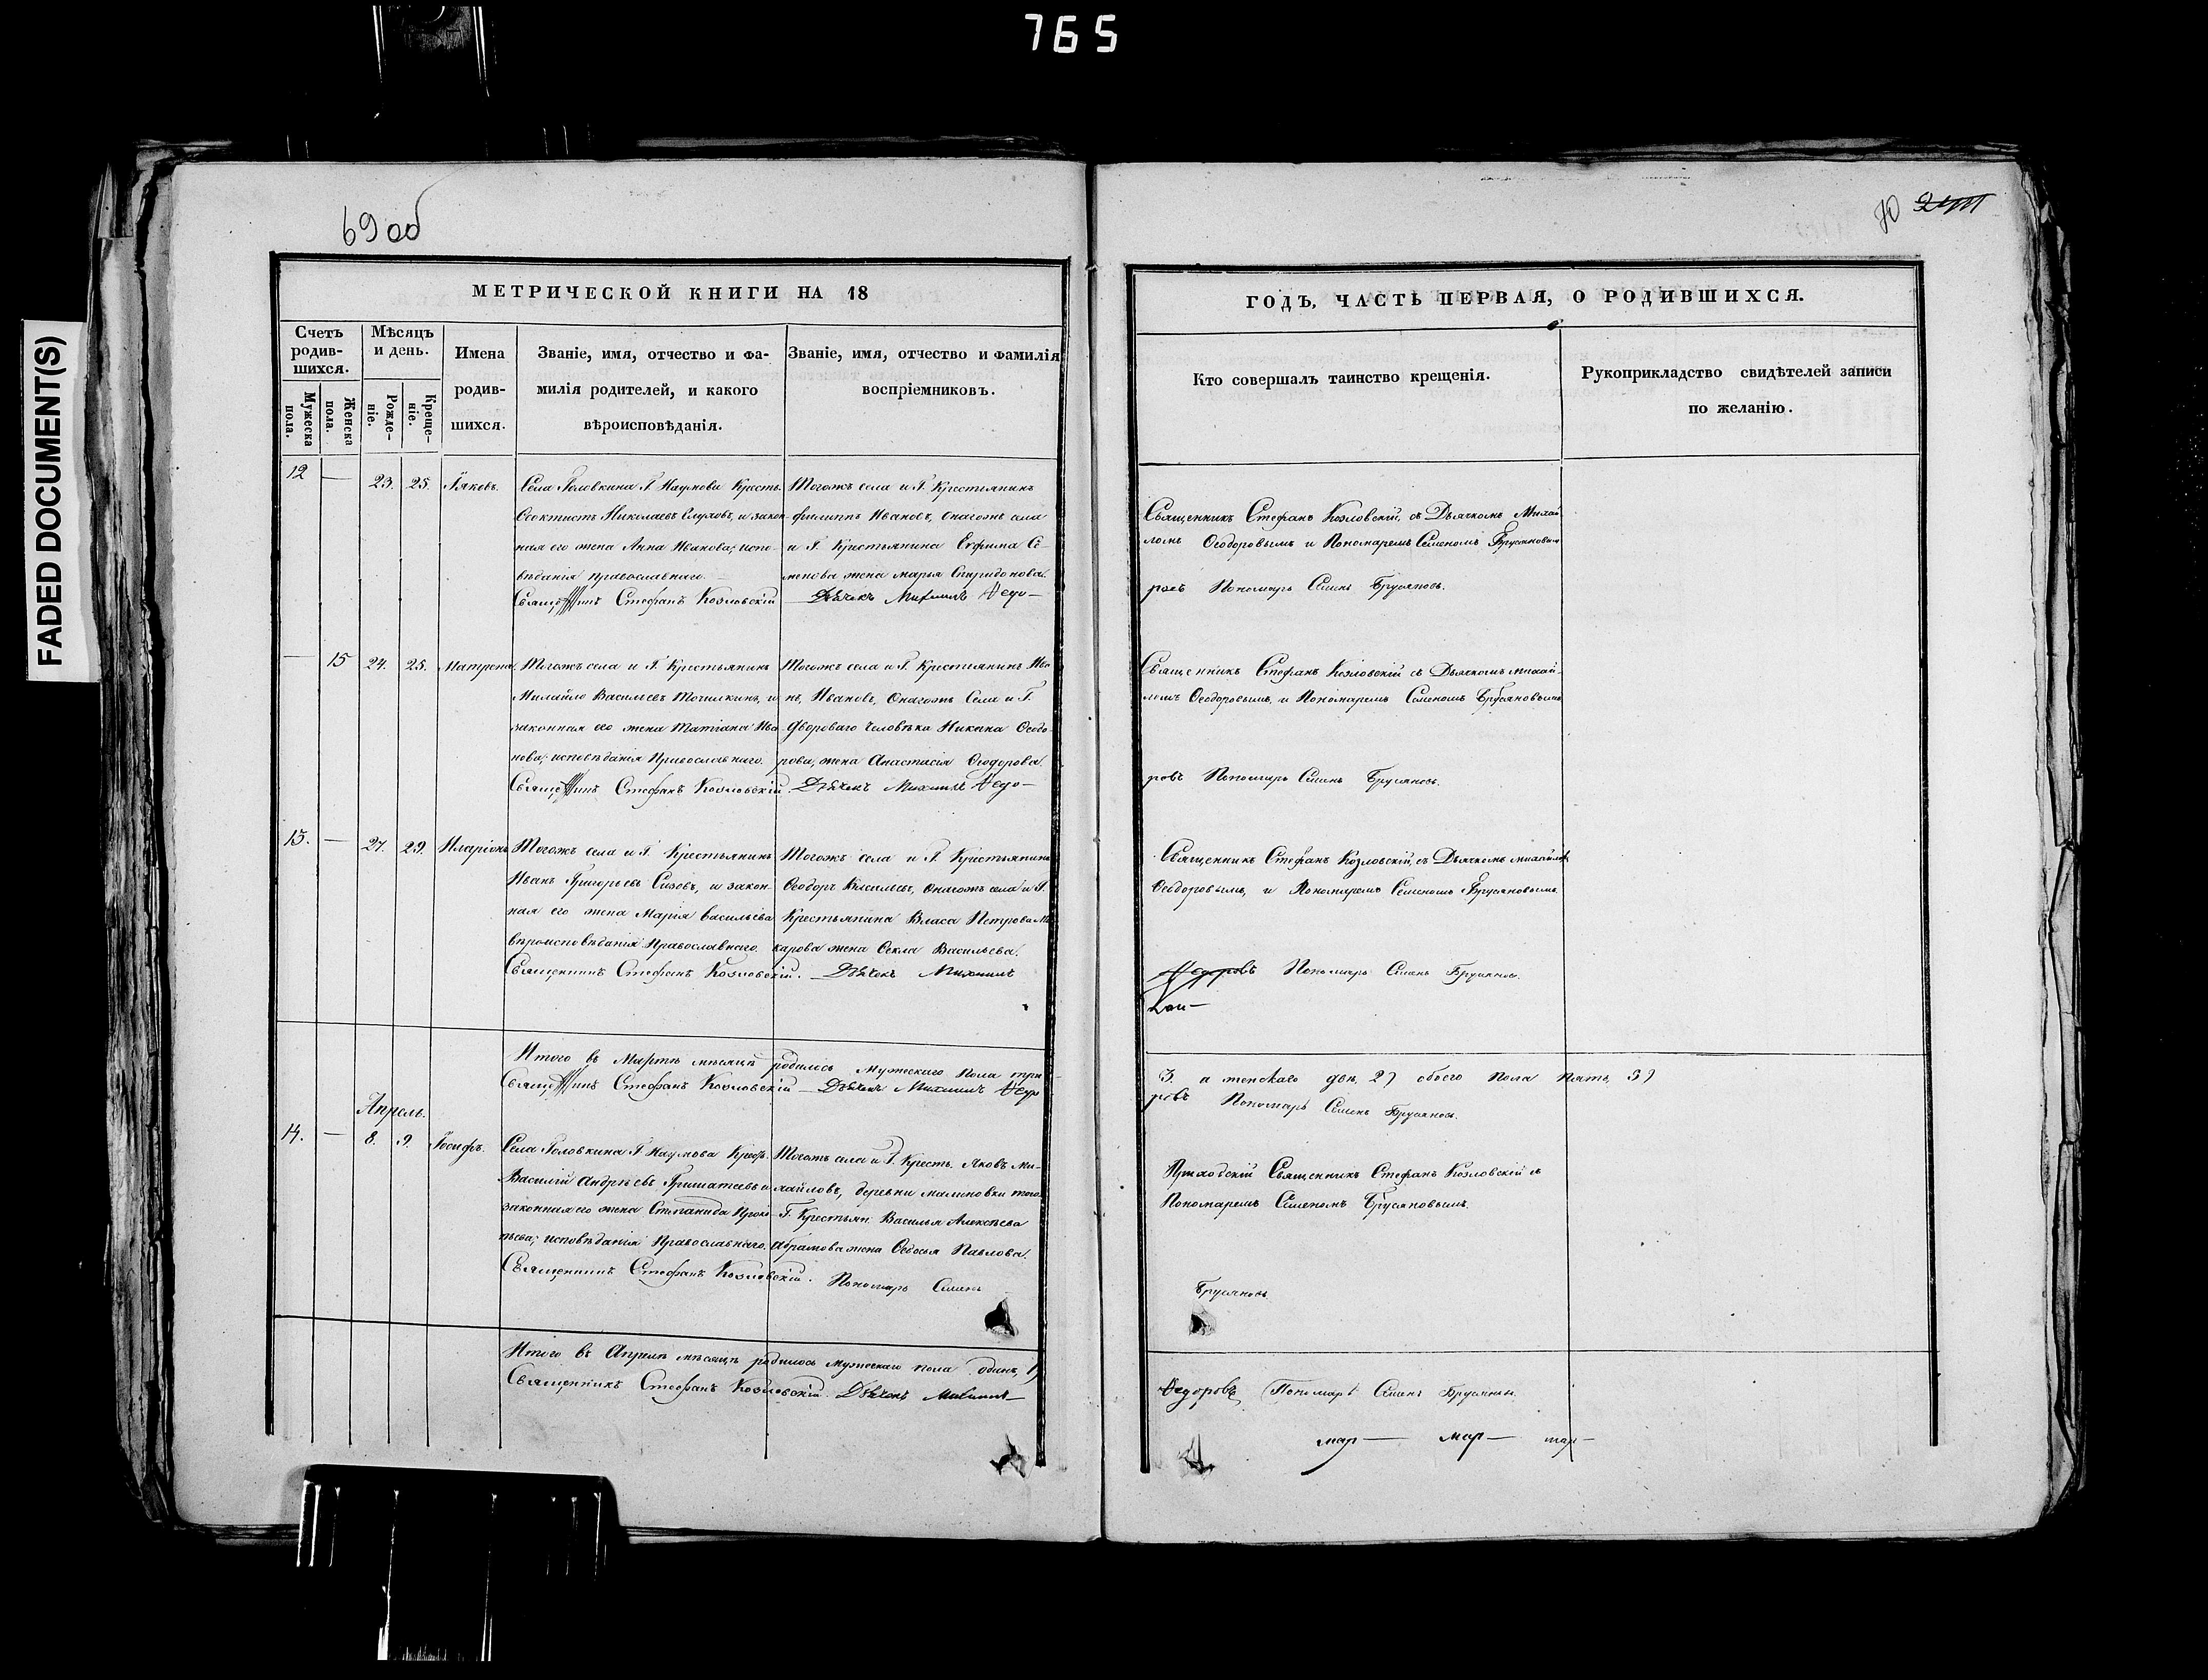 765
FADED DOCUMENT(S)
69 об
МЕТРИЧЕСКОЙ КНИГИ НА 18
Счетъ родив-шихся.
Мѣсяцъ и день.
Мужеска пола.
Женска пола.
Рожде-ніе.
Креще-ніе.
Имена родив-шихся.
Званіе, имя, отчество и фа-
милія родителей, и какого
вѣроисповѣданія.
Званіе, имя, отчество и фамилія
воспріемниковъ.
12 — 23. 25. Іаковъ.
Села Головкина Г. Наумова Кресть.
Ѳеоктистъ Николаевъ Глуховъ, и закон-
ная его жена Анна Иванова; испо-
вѣданія православнаго.
Священникъ Стефанъ Козловскій
Тогожъ села и Г. Крестьянинъ
Филиппъ Ивановъ, Онагожъ села
и Г. Крестьянина Евфима Се-
менова жена Марья Спиридонова.
Дьячекъ Михаилъ Ѳедо-
— 15 24. 25. Матрена.
Тогожъ села и Г. Крестьянинъ
Михайло Васильевъ Точилкинъ, и
законная его жена Татіана Ива-
нова; исповѣданія Православнаго.
Священникъ Стефанъ Козловскій.
Тогожъ села и Г. Крестьянинъ Ива-
нъ Ивановъ, Онагожъ Села и Г.
Двороваго человѣка Никана Ѳеодо-
рова, жена Анастасія Ѳеодорова.
Дьячекъ Михаилъ Ѳедо-
13. — 27. 29. Иларіонъ
Тогожъ села и Г. Крестьянинъ
Иванъ Григорьевъ Сизовъ, и закон-
ная его жена Марія Васильева
вѣроисповѣданія Православнаго.
Священникъ Стефанъ Козловскій.
Тогожъ села и Г. Крестьянинъ
Ѳеодоръ Васильевъ, Онагожъ села и Г.
Крестьянина Власа Петрова Ма-
карова жена Ѳекла Васильева.
Дьячекъ Михаилъ
Итого въ Мартѣ мѣсяцѣ родилось Мужескаго Пола три
Священникъ Стефанъ Козловскій Дьячекъ Михаилъ Ѳедо
Апрель.
14. — 8. 9. Іосифъ.
Села Головкина Г. Наумова Крест.
Василій Андрѣевъ Гришатаевъ и
законная его жена Степанида Проко-
пьева; исповѣданія Православнаго.
Священникъ Стефанъ Козловскій.
Тогожъ села и Г. Кресть. Яковъ Ми-
хайловъ, деревни Малиновки того
Г. Крестьян. Василья Алексѣева
Абрамова жена Ѳедосья Павлова.
Пономарь Семенъ
Итого въ Апрелѣ мѣсяцѣ родилось мужескаго пола одинъ, 1)
Священникъ Стефанъ Козловскій. Дьячекъ Михаилъ
70
ГОДЪ, ЧАСТЬ ПЕРВАЯ, О РОДИВШИХСЯ.
Кто совершалъ таинство крещенія.
Рукоприкладство свидѣтелей записи
по желанію.
Священникъ Стефанъ Козловскій, съ Дьячкомъ Михай
ломъ Ѳеодоровымъ и Пономаремъ Семеномъ Брусяновым
ровъ Пономарь Семенъ Брусяновъ.
Священникъ Стефанъ Козловскій съ Дьячкомъ Михай-
ломъ Ѳеодоровымъ, и Пономаремъ Семеномъ Брусяновымъ
ровъ Пономарь Семенъ Брусяновъ.
Священникъ Стефанъ Козловскій, съ Дьячкомъ Михайлом
Ѳеодоровымъ, и Пономаремъ Семеномъ Брусяновымъ.
Ѳедоровъ Пономарь Семенъ Брусяновъ.
3. а женскаго два, 2) обоего пола пять, 5)
ровъ Пономарь Семенъ Брусяновъ.
Приходскій Священникъ Стефанъ Козловскій съ
Пономаремъ Семеномъ Брусяновымъ.
Брусяновъ
Ѳедоровъ Пономарь Семенъ Брусяновъ.
мар— мар— мар—